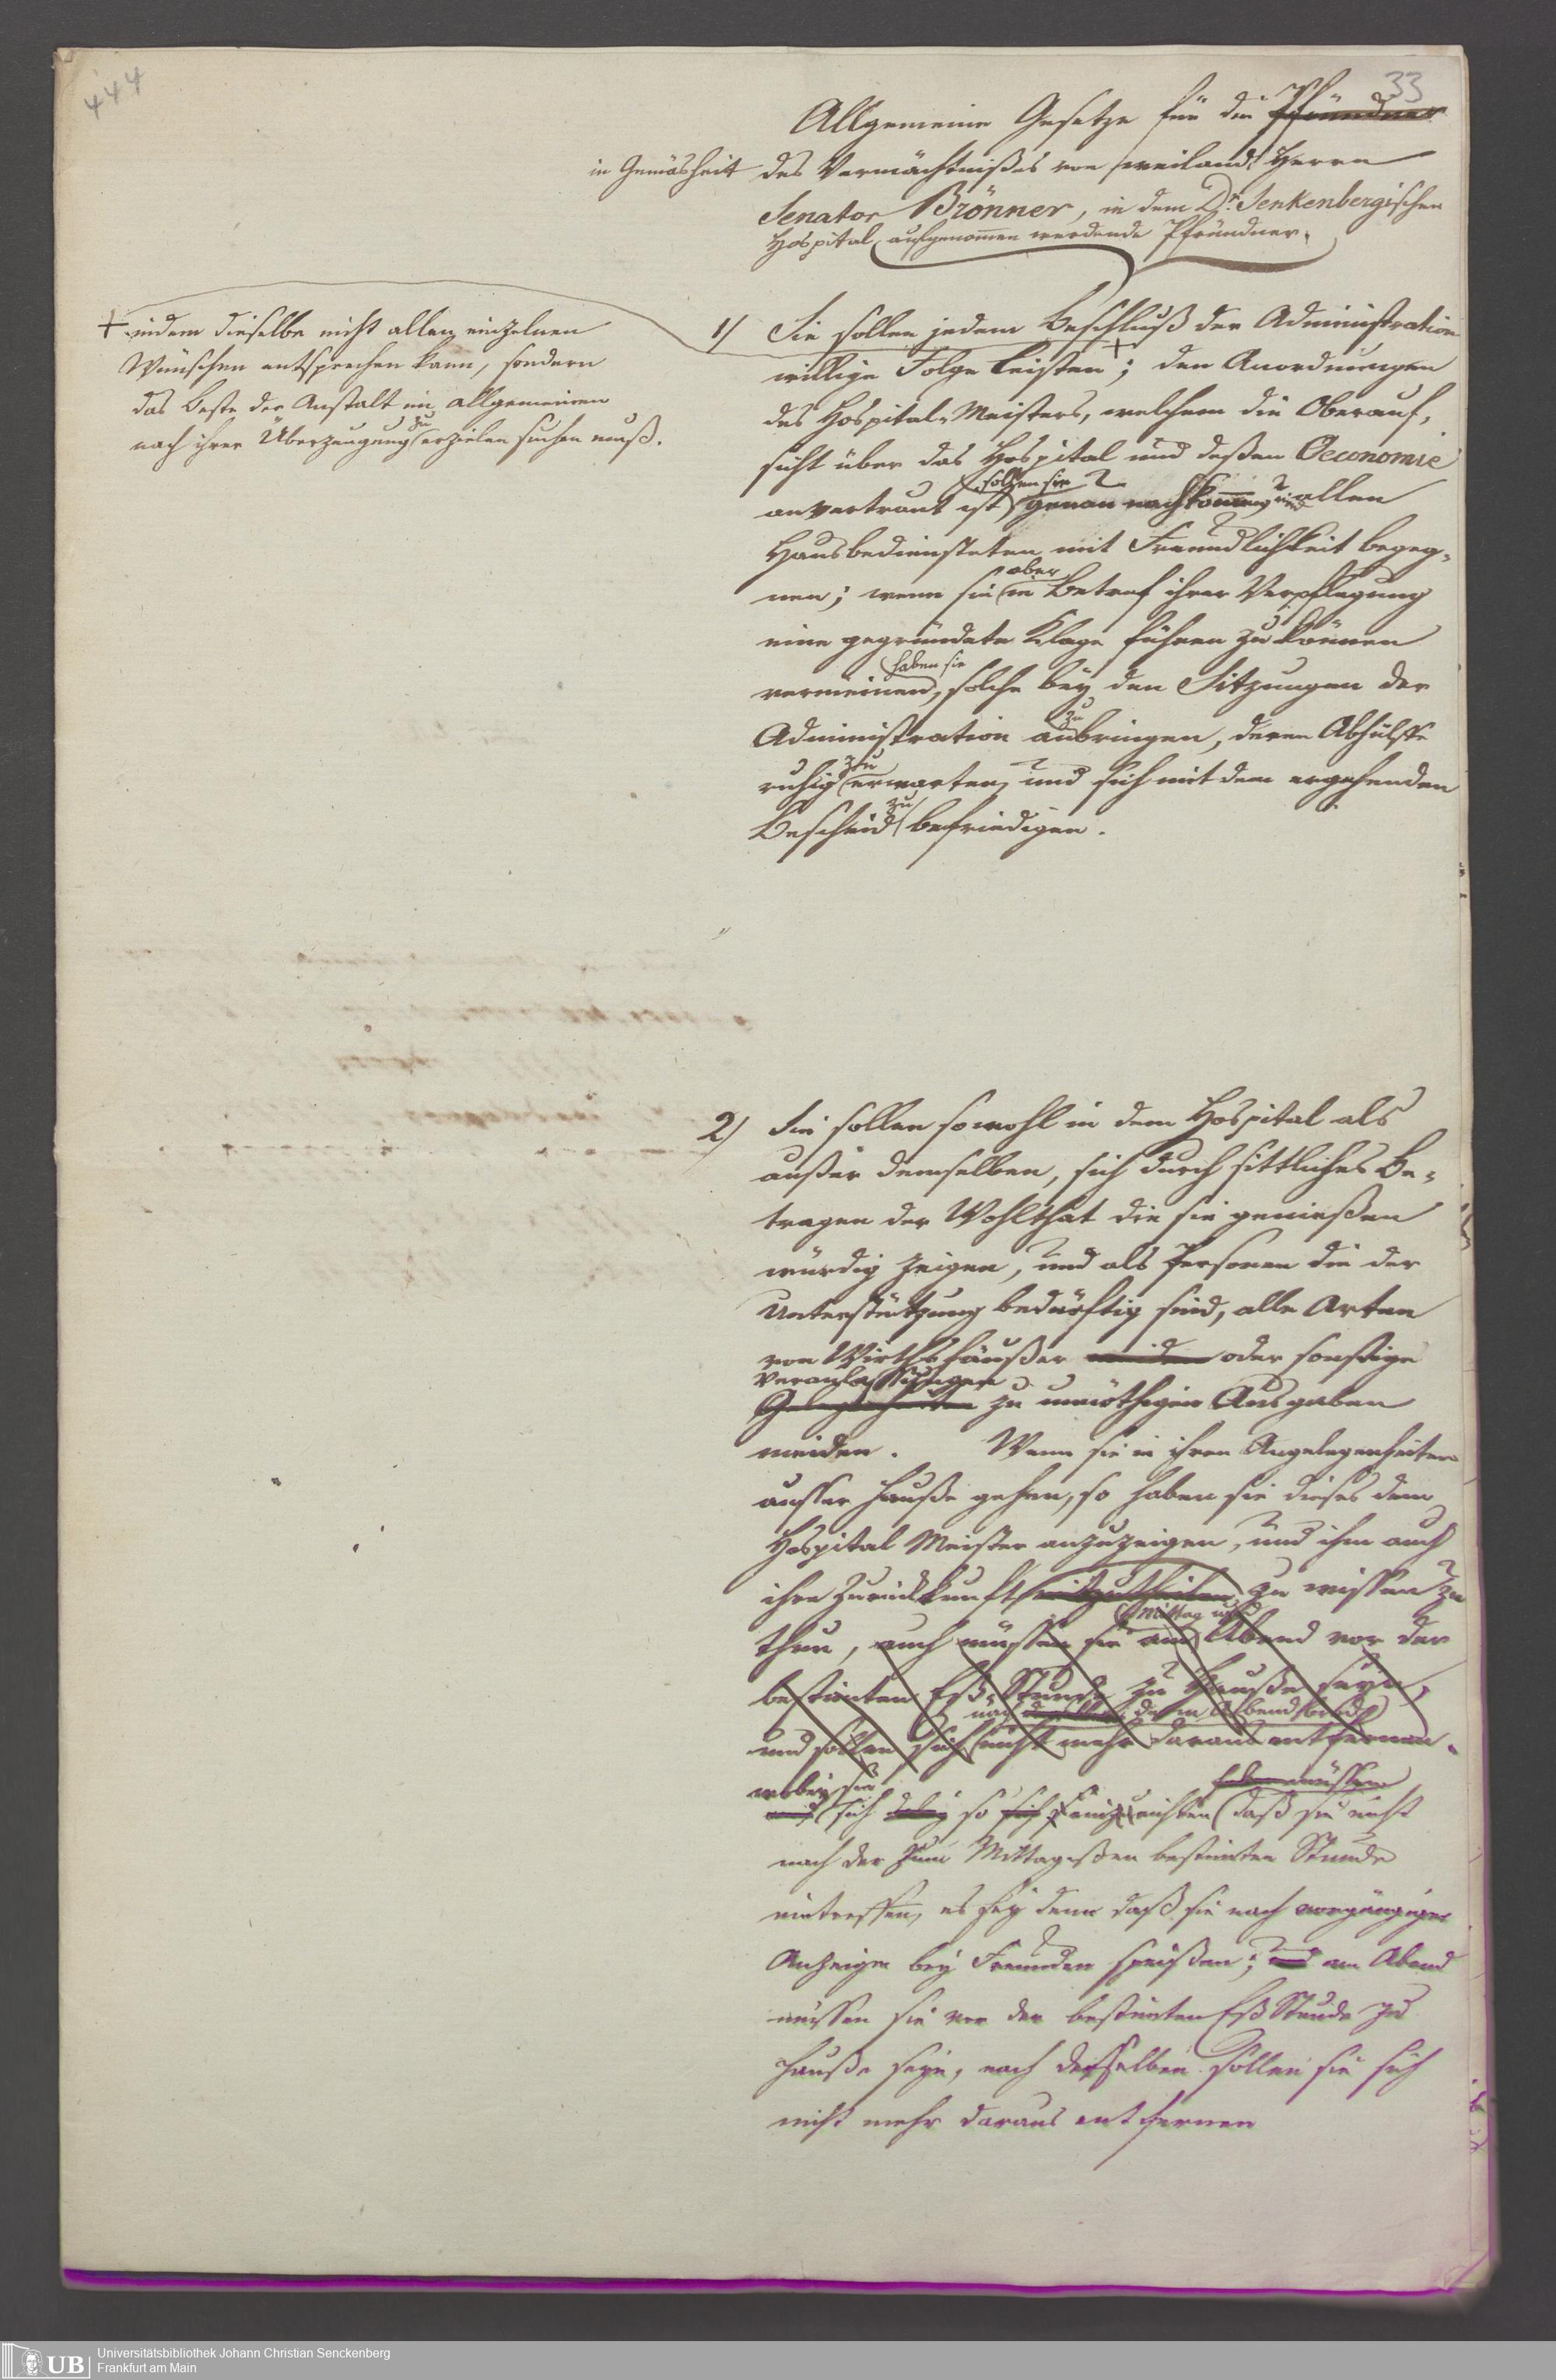 444
33
Allgemeine Gesetze für die Pfründner
in Gemäsheit des Vermächtnißes von weiland Herrn
Senator Brönner, in dem Dr. Senkenbergischen
Hospital aufgenom̄en werdende Pfründner.
+ indem dieselbe nicht allen einzelnen
Wünschen entsprechen kann, sondern
das Beste der Anstalt im allgemeinen
nach ihrer Überzeugung zu erzielen suchen muß.
1/ Sie sollen jedem Beschluß der Administration
willige Folge leisten +; den Anordnungen
des Hospital-Meisters, welchem die Oberauf-
sicht über das Hospital und deßen Oeconomie
sollen sie
anvertraut ist genau nachkom̄en, und allen
Hausbediensteten mit Freundlichkeit begeg-
aber
nen; wenn sie in Betref ihrer Verpflegung
eine gegründete Klage führen zu können
haben sie
vermeinen, solche bey den Sitzungen der
zu
Administration anbringen, deren Abhülffe
zu
ruhig erwarten, und sich mit dem ergehenden
zu
Bescheid befriedigen.
2/ Sie sollen sowohl in dem Hospital als
außer demselben, sich durch sittliches Be-
tragen der Wohlthat die sie genießen
würdig zeigen, und als Personen die der
Unterstützung bedürftig sind, alle Arten
von Wirthshäußer meiden oder sonstige
Veranlassungen
Gelegenheiten zu unnöthigen Ausgaben
meiden. Wenn sie in ihren Angelegenheiten
ausser Hauße gehen, so haben sie dieses dem
Hospital Meister anzuzeigen, und ihm auch
ihre Zurückkunft mitzutheilen zu wissen zu
Mittag und
thun, auch müssen sie am Abend vor der
bestimten Eß-Stunde zu Hauße seyn,
nach dem Abendbrod
und sollen sich nicht mehr daraus entfernen.
wobey sie
müssen
und sich so sich einzurichten daß sie nicht
nach der zum Mittagessen bestimten Stunde
eintreffen, es sey denn daß sie nach vorgängiger
Anzeige bey Freunden speißen; und am Abend
müssen sie vor der bestimten Eß Stunde zu
Hauße seyn, nach derselben sollen sie sich
nicht mehr daraus entfernen
UB Universitätsbibliothek Johann Christian Senckenberg
Frankfurt am Main